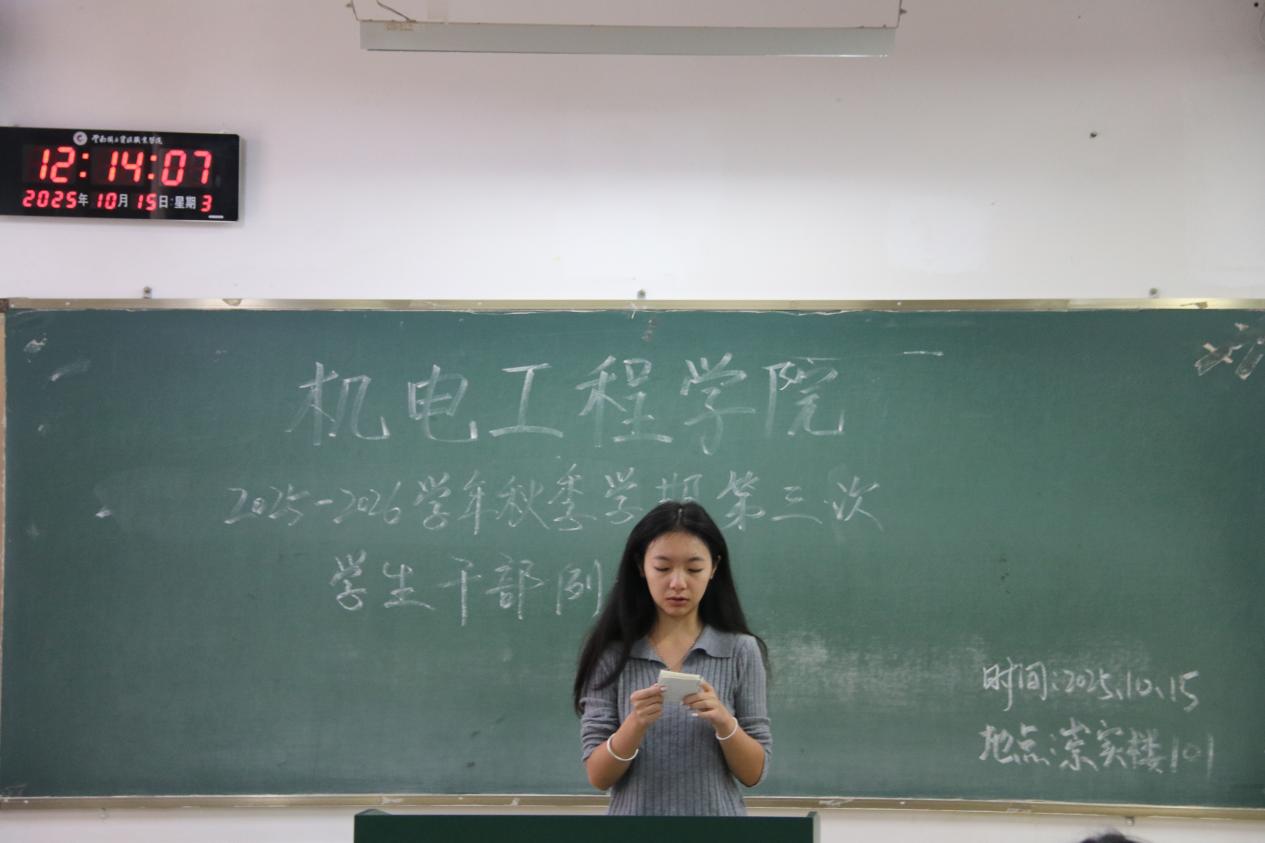 12:14:07
2025年 10月 15日 星期 3
机电工程学院
2025-2026学年秋季学期第三次
学生干部例
时间:2025.10.15
地点:崇实楼101